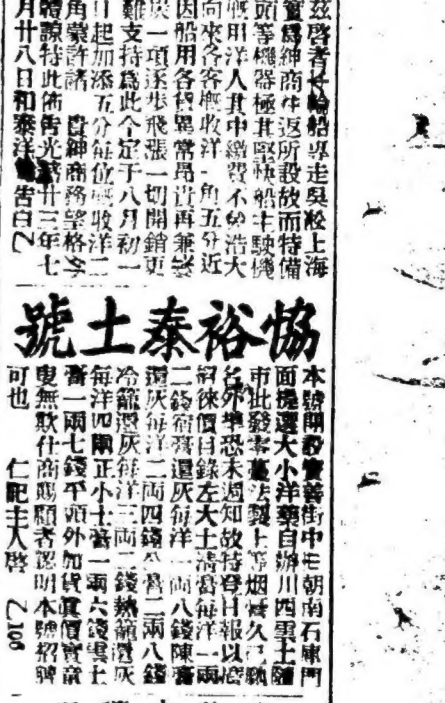 茲啓者本輪船專走吳淞上海
實爲紳商往返所設故而特備
頭等機器極其堅快船主駛機
概用洋人其中繳費不免浩大
向來各客概收洋一角五分近
因船用各貨異常昂貴再兼
炭一項逐步飛漲一切開銷更
難支持爲此今定于八月初一
日起加添五分每位概收洋二
角蒙許諸貴紳商務望格外
體諒特此佈告光緒廿三年七
月廿八日和泰洋 告白乙
協裕泰土號
本號開設寶善街中 朝南石庫門
面揀選大小洋藥自辦川西雲土
市批發零躉法製上等烟膏久已馳
名外埠恐未週知故特登日報以
招徠價目錄左大土清膏每洋一兩
二錢宿膏還灰每洋一兩八錢陳膏
還灰每洋二両四錢 膏二兩八錢
冷籠還灰每洋三両二錢熱籠還灰
每洋四兩正小土膏一兩六錢雲土
膏一兩七錢平頭外加貨真價實童
叟無欺仕商賜顧者認明本號招牌
可也 仁記主人啓 乙106